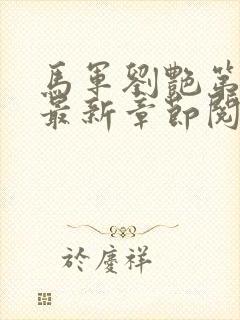 馬軍劉艷第
最新章節閱
於慶祥